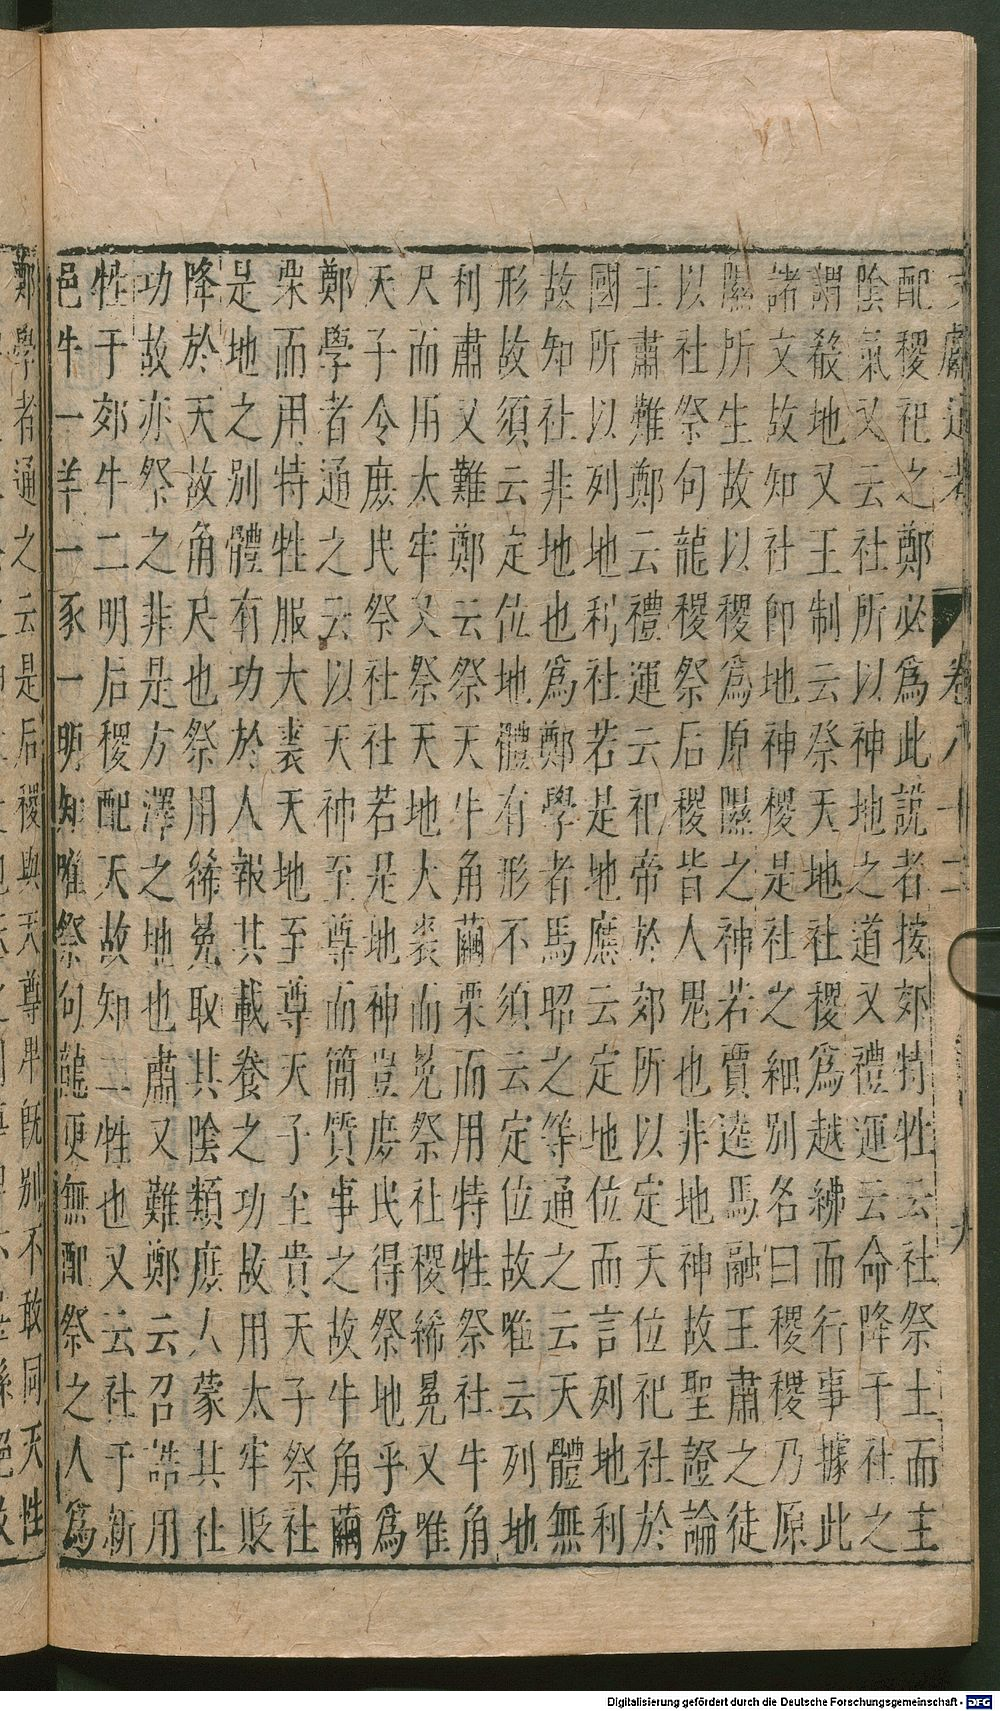 文獻通考 卷八十二 九
配稷祀之鄭必爲此說者按郊特牲云社祭土而主
陰氣又云社所以神地之道又禮運云命降于社之
謂殽地又王制云祭天地社稷爲越紼而行事據此
諸文故知社卽地神稷是社之細別名曰稷稷乃原
隰所生故以稷爲原隰之神若賈逵馬融王肅之徒
以社祭句龍稷祭后稷皆人鬼也非地神故聖證論
王肅難鄭云禮運云祀帝於郊所以定天位祀社於
國所以列地利社若是地應云定地位而言列地利
故知社非地也爲鄭學者馬昭之等通之云天體無
形故須云定位地體有形不須云定位故唯云列地
利肅又難鄭云祭天牛角繭栗而用特牲祭社牛角
尺而用太牢又祭天地大裘而冕祭社稷絺冕又唯
天子令庶民祭社社若是地神豈庶民得祭地乎爲
鄭學者通之云以天神至尊而簡質事之故牛角繭
栗而用特牲服大裘天地至尊天子至貴天子祭社
是地之別體有功於人報其載養之功故用太牢貶
降於天故角尺也祭用絺冕取其陰類庶人蒙其社
功故亦祭之非是方澤之地也肅又難鄭云召誥用
牲于郊牛二明后稷配天故知二牲也又云社于新
邑牛一羊一豕一明知唯祭句龍更無配祭之人爲
鄭學者通之云是后稷與天尊卑旣別不敢同天牲
Digitalisierung gefördert durch die Deutsche Forschungsgemeinschaft - DFG